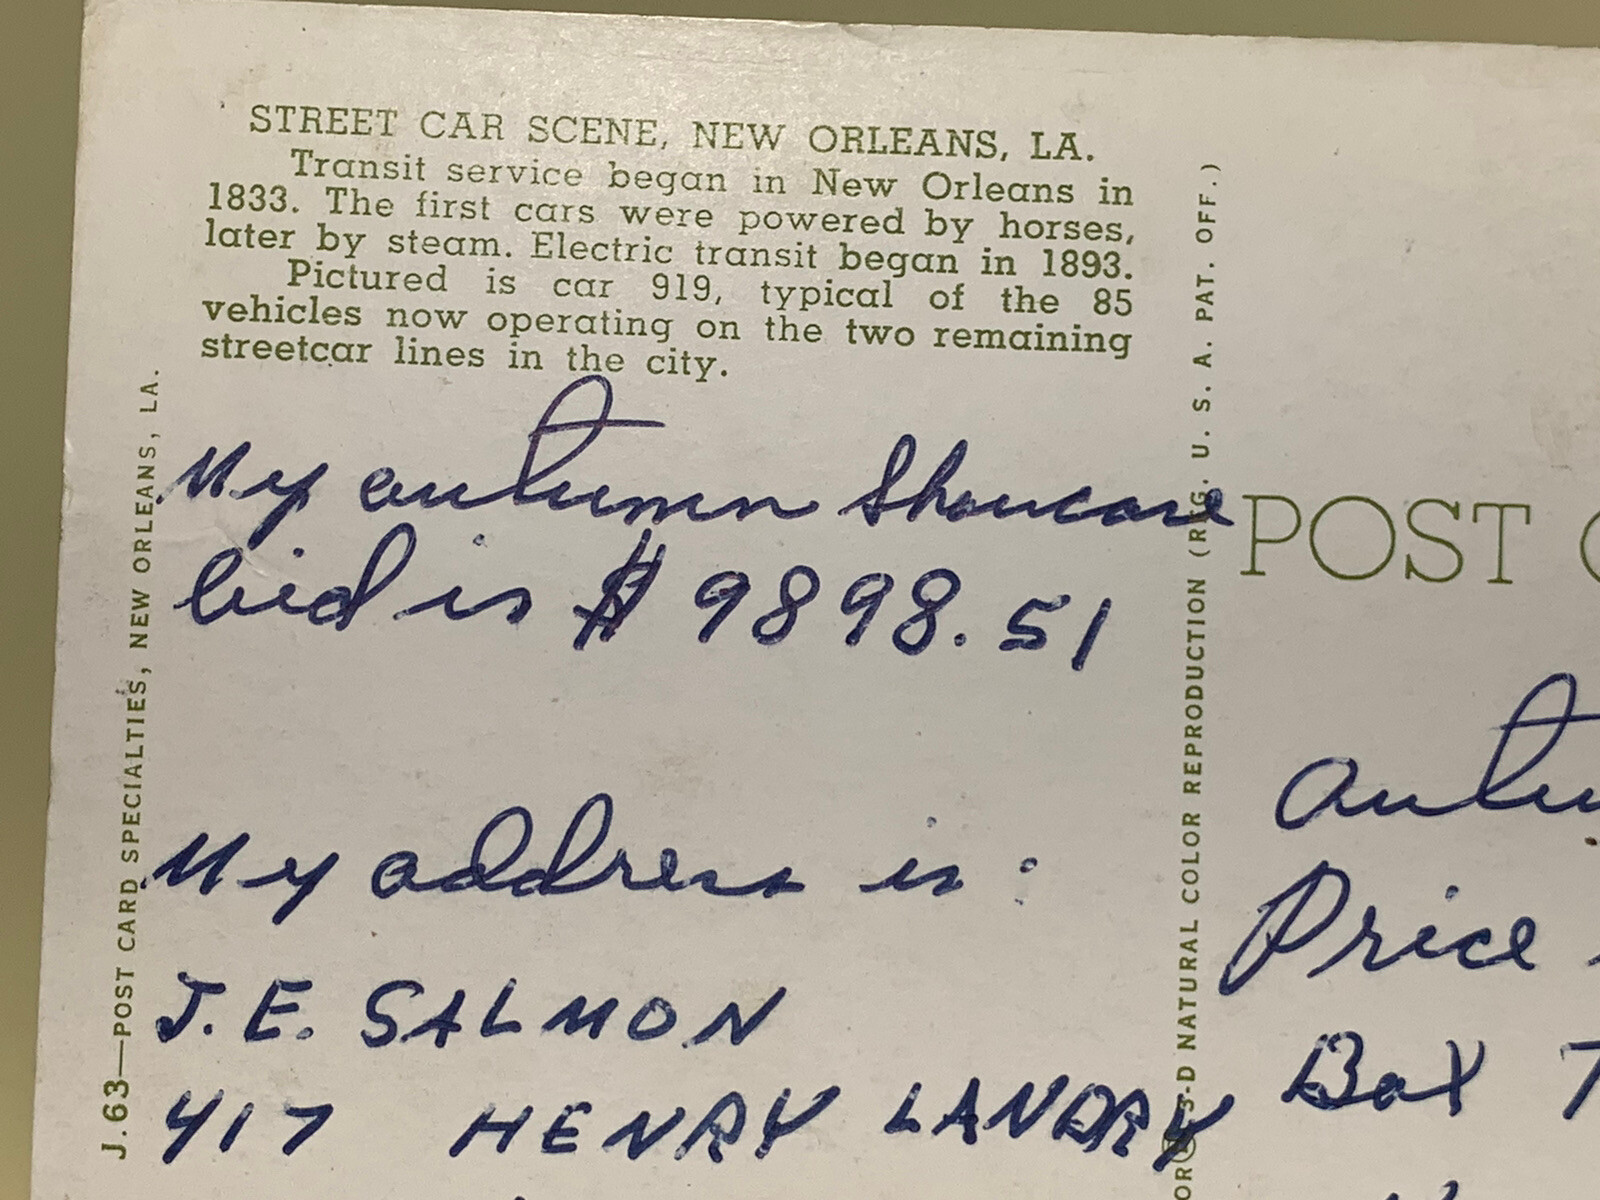 STREET CAR SCENE, NEW ORLEANS, LA.
Transit service began in New Orleans in
1833. The first cars were powered by horses,
later by steam. Electric transit began in 1893.
Pictured is car 919, typical of the 85
vehicles now operating on the two remaining
streetcar lines in the city.
My autumn Showcase
bid is $ 9898.51
My address is:
J.E. SALMON
417 HENRY LANDRY
J.63—POST CARD SPECIALTIES, NEW ORLEANS, LA.
3-D NATURAL COLOR REPRODUCTION (REG. U. S. A. PAT. OFF.)
POST
Price
Box